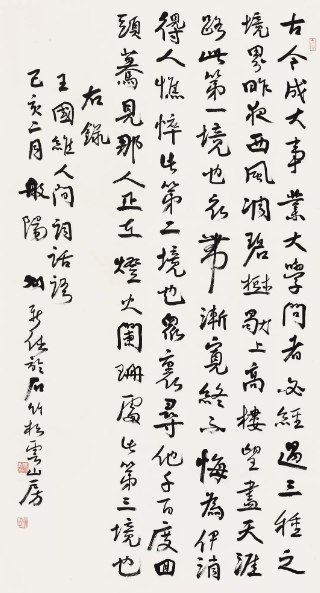 古今成大事業大學問者必經過三種之
境界昨夜西風凋碧樹獨上高樓望盡天涯
路此第一境也衣帶漸寬終不悔為伊消
得人憔悴此第二境也眾裏尋他千百度回
頭驀見那人正在燈火闌珊處此第三境也
右錄
王國維人間詞話語
己亥二月般陽
於石竹松雲山房